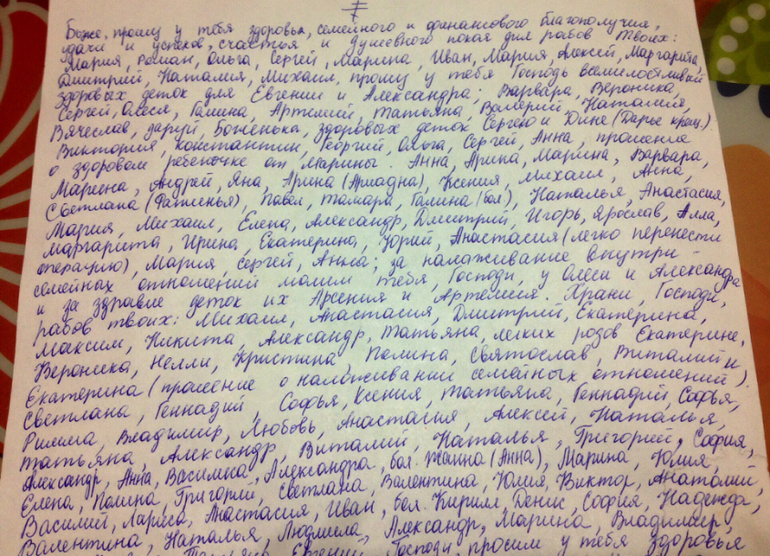 Боже, прошу у тебя здоровья, семейного и финансового благополучия,
удачи и успехов, счастья и душевного покоя для рабов Твоих:
Мария, Роман, Ольга, Сергей, Марина, Иван, Мария, Алексей, Маргарита,
Дмитрий, Наталия, Михаил, прошу у тебя Господь всемилостивый
здоровых деток для Евгении и Александра; Варвара, Вероника,
Сергей, Олеся, Галина, Артемий, Татьяна, Валерий, Наталия,
Вячеслав, даруй, Боженька, здоровых деток Сергею и Дине (Дарье крещ.)
Виктория, Константин, Георгий, Ольга, Сергей, Анна, прошение
о здоровом ребеночке от Марины. Анна, Арина, Марина, Варвара,
Марина, Андрей, Яна, Арина (Ариадна), Ксения, Михаил, Анна,
Светлана (Фатинья), Павел, Тамара, Галина (бол), Наталья, Анастасия,
Мария, Михаил, Елена, Александр, Дмитрий, Игорь, Ярослав, Алла,
Маргарита, Ирина, Екатерина, Юрий, Анастасия (легко перенести
операцию), Мария, Сергей, Анна; за налаживание внутри-
семейных отношений молим тебя, Господи, у Олеси и Александра
и за здравие деток их Арсения и Артемия. Храни, Господи,
рабов твоих: Михаил, Анастасия, Дмитрий, Екатерина,
Максим, Никита, Александр, Татьяна, легких родов Екатерине,
Вероника, Нелли, Кристина, Полина, Святослав, Виталий и
Екатерина (прошение о налаживании семейных отношений).
Светлана, Геннадий, Софья, Ксения, Татьяна, Геннадий, Софья,
Римма, Владимир, Любовь, Анастасия, Алексей, Наталья,
Татьяна, Александр, Виталий, Наталья, Григорий, София,
Александр, Анна, Василиса, Александра, бол. Жанна (Анна), Марина, Юлия,
Елена, Полина, Григорий, Светлана, Валентина, Юлия, Виктор, Анатолий,
Василий, Лариса, Анастасия, Иван, бол. Кирилл, Денис, София, Надежда,
Валентина, Наталья, Людмила, Александр, Марина, Владимир,
Евгений, Господи просим у тебя здоровья